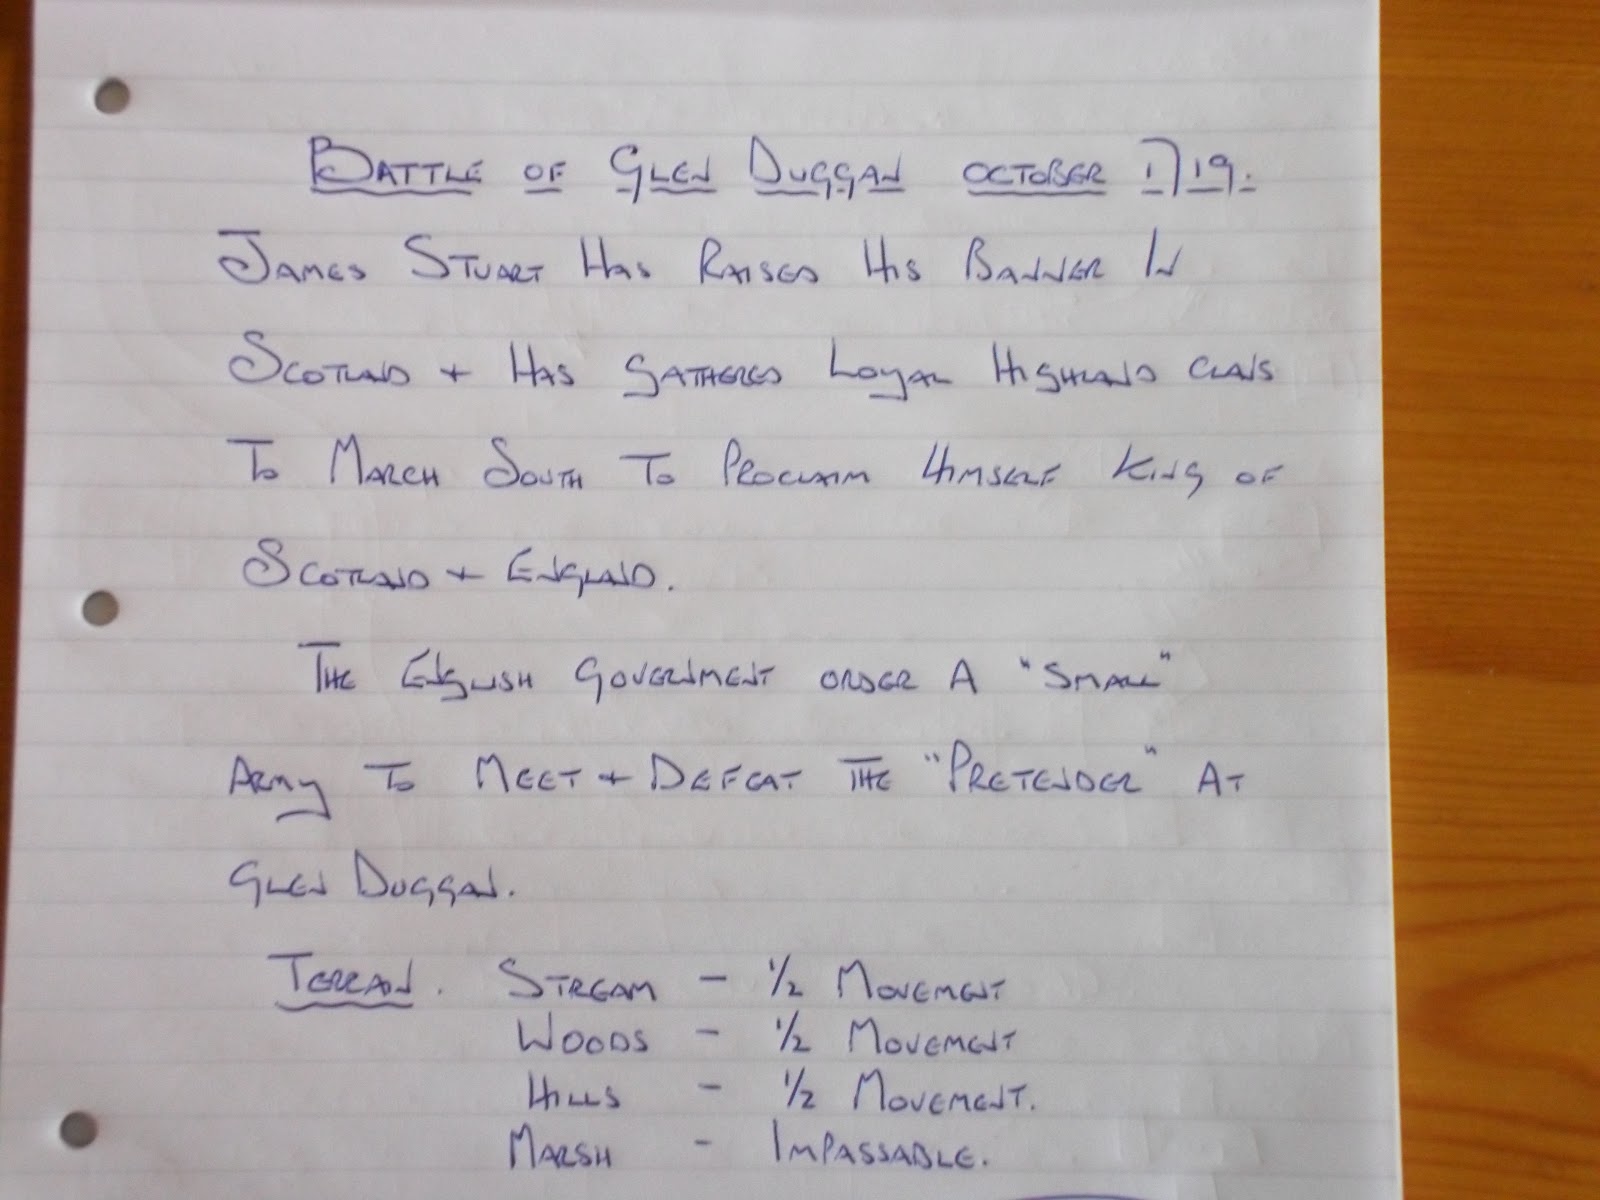 Battle of Glen Duggan October 1719.
James Stuart Has Raised His Banner In
Scotland + Has Gathered Loyal Highland Clans
To March South To Proclaim Himself King of
Scotland + England.
The English Government order A "Small"
Army To Meet + Defeat The "Pretender" At
Glen Duggan.
Terrain. Stream - 1/2 Movement
Woods - 1/2 Movement
Hills - 1/2 Movement.
Marsh - Impassable.